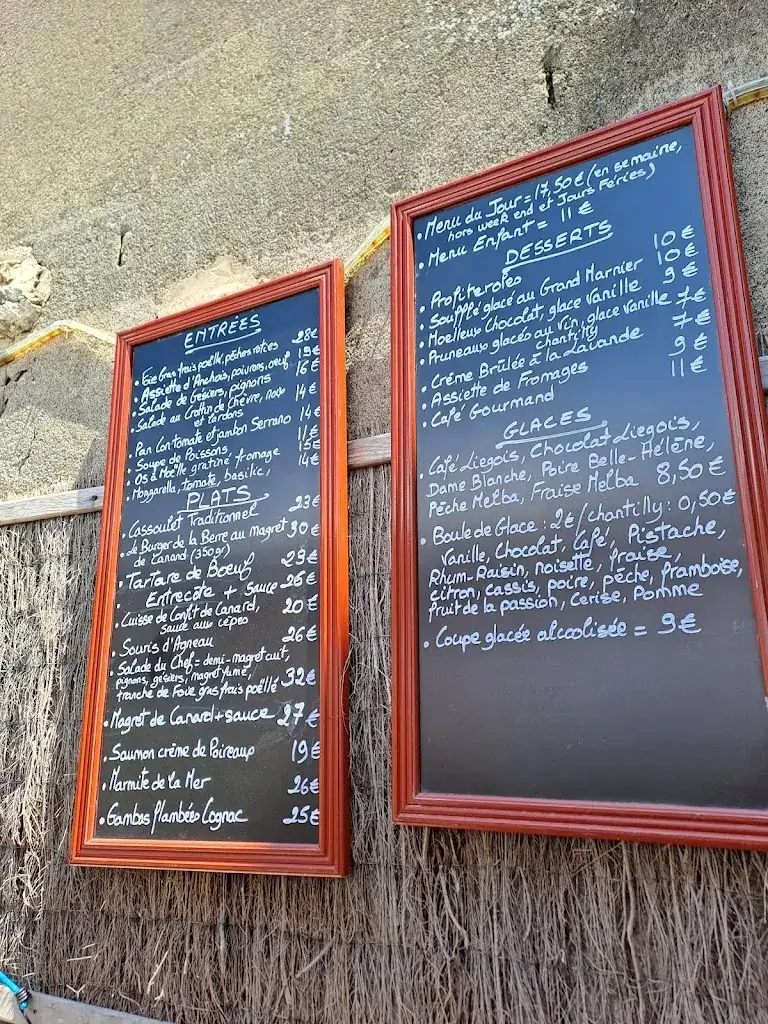 ENTRÉES
• Foie Gras frais poêllé, pêches roties 28€
• Assiette d'Anchois, poivrons, oeuf 19€
• Salade de Gésiers, pignons 16€
• Salade au Crottin de Chèvre, noix et lardons 14€
• Pan Con tomate et jambon Serrano 14€
• Soupe de Poissons, 11€
• Os à Moëlle gratiné fromage 15€
• Mozzarella, tomate, basilic, 14€
PLATS
• Cassoulet Traditionnel 23€
• Le Burger de la Berre au magret
de Canard (350gr) 30€
• Tartare de Boeuf 23€
• Entrecôte + sauce 26€
• Cuisse de Confit de Canard,
sauce aux cèpes 20€
• Souris d'Agneau 26€
• Salade du Chef = demi-magret cuit,
pignons, gésiers, magret fumé,
tranche de Foie gras frais poêllé 32€
• Magret de Canard + sauce 27€
• Saumon crème de Poireaux 19€
• Marmite de la Mer 26€
• Gambas flambées Cognac 25€
• Menu du Jour = 17,50€ (en semaine,
hors week end et Jours Féries)
• Menu Enfant = 11€
DESSERTS
• Profiteroles 10€
• Soufflé glacé au Grand Marnier 10€
• Moelleux Chocolat, glace vanille 9€
• Pruneaux glacés au vin, glace vanille 7€
chantilly
• Crème Brûlée à la Lavande 7€
• Assiette de Fromages 9€
• Café Gourmand 11€
GLACES
• Café Liegois, Chocolat Liegois,
Dame Blanche, Poire Belle-Hélène,
Pêche Melba, Fraise Melba 8,50€
• Boule de Glace : 2€/chantilly : 0,50€
Vanille, Chocolat, Café, Pistache,
Rhum-Raisin, noisette, fraise,
Citron, Cassis, poire, pêche, framboise,
fruit de la passion, Cerise, Pomme
• Coupe glacée alcoolisée = 9€